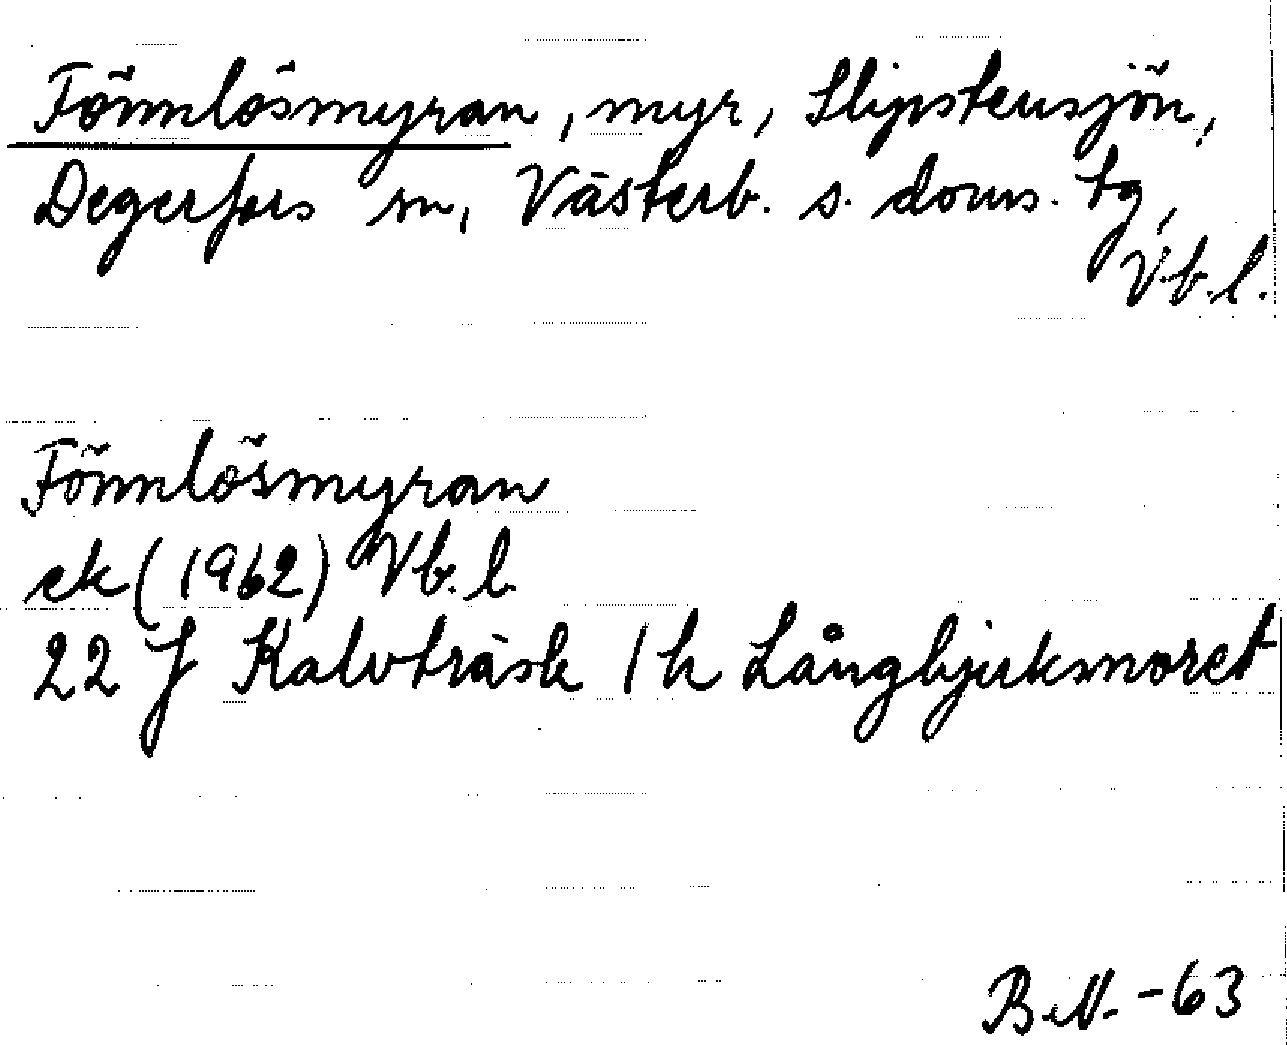 Tömnlösmyran, myr, Slipstensjön,
Degerfors sn, Västerb. s. doms. tg,
Vb.l.
Tömnlösmyran
ek (1962) Vb. l.
22 J Kalvträsk 1 h Långbjuksmoret
B.N. -63